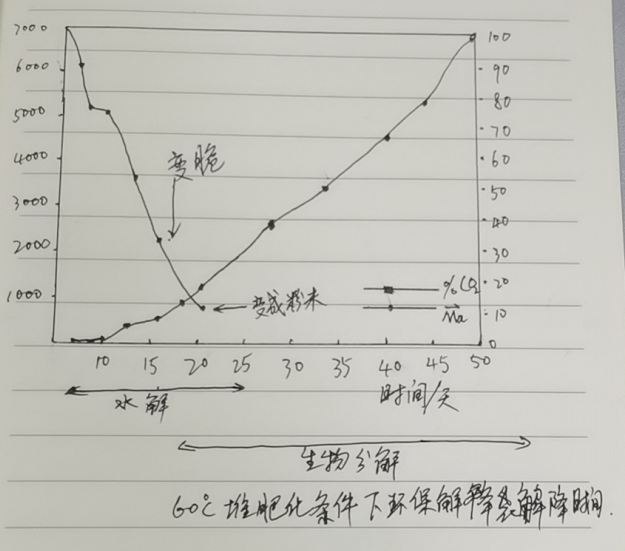 7000
100
6000
90
5000
80
70
4000
60
变脆
3000
50
40
2000
30
1000
%CO₂
20
变成粉末
Mn
10
0
10 15 20 25 30 35 40 45 50
时间/天
水解
生物分解
60℃堆肥化条件下环保解降袋解降时间.